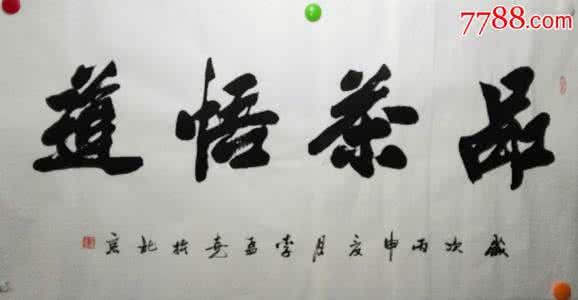 7788.com
品茶悟道
歲次丙申亥月李孟尧於北京